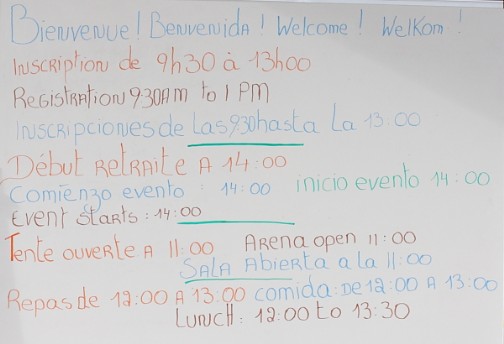 Bienvenue! Benvenida! Welcome! Welkom!
Inscription de 9h30 à 13h00
Registration 930Am to 1 PM
Inscripciones de Las930hasta La 13.00
Début Retraite A 14:00
Comienzo evento : 14:00 inicio evento 14:00
Event Starts : 14:00
Tente ouverte A 11:00 Arena open 11:00
SALA Abierta a la 11:00
Repas de 12:00 A 13:00 comida: De 12:00 A 13:00
Lunch: 12:00 to 13:30